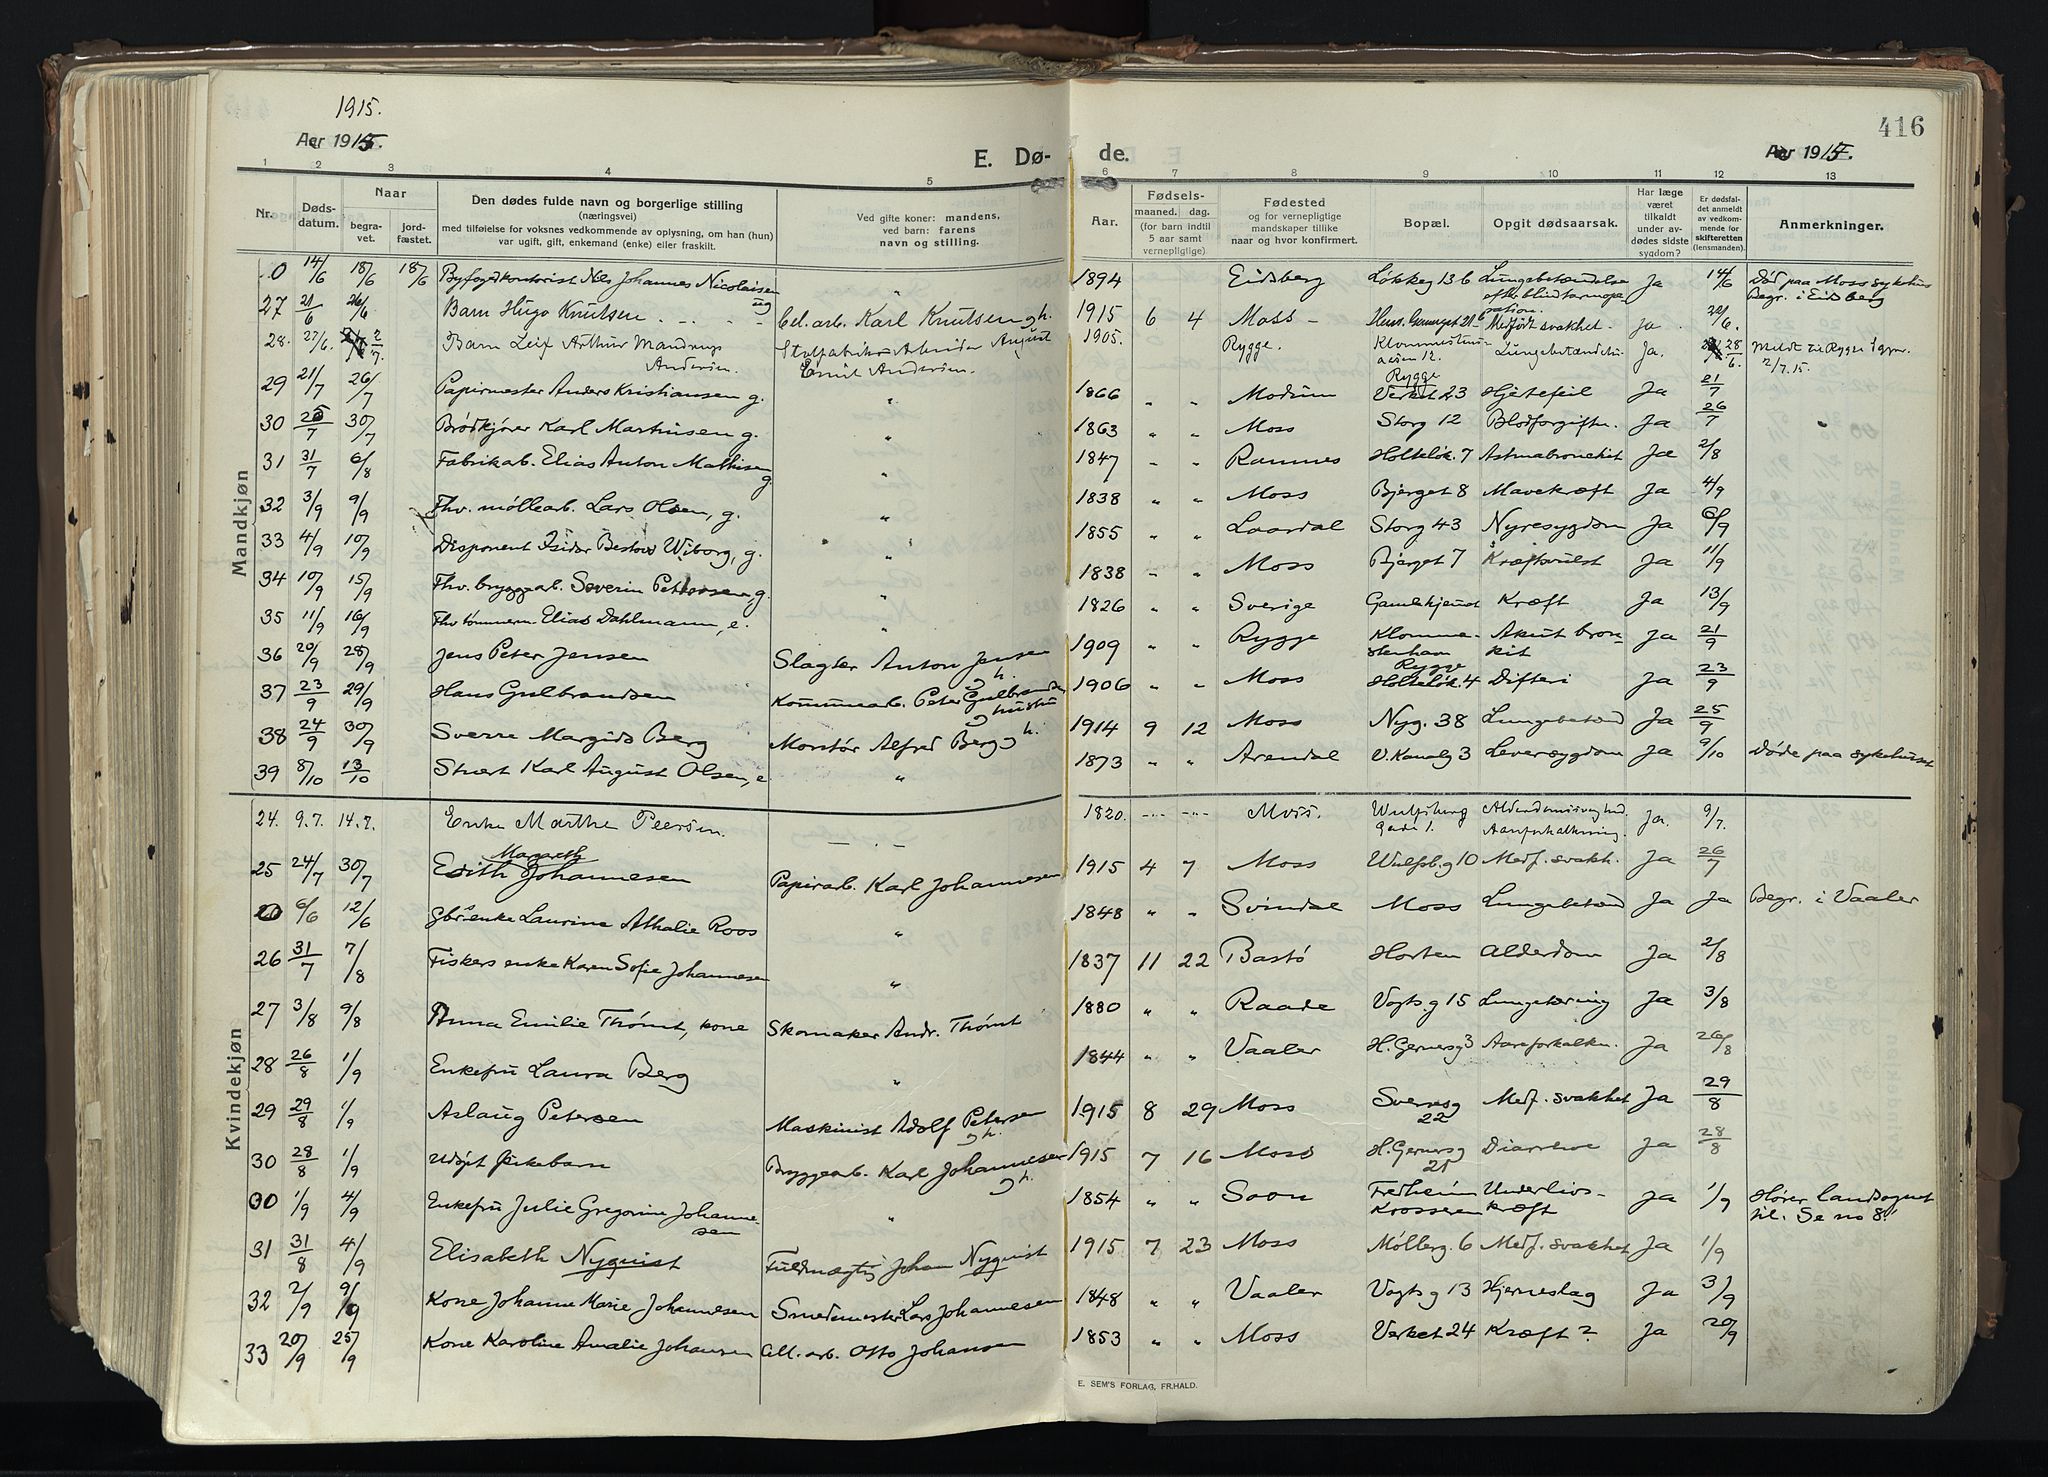 1915.
Aar 1915.
E. Dø-
1 2 3 4 5
Mandkjøn
Nr. Døds-datum. Naar begra-vet. jord-fæstet. Den dødes fulde navn og borgerlige stilling (næringsvei) med tilføielse for voksnes vedkommende av oplysning, om han (hun) var ugift, gift, enkemand (enke) eller fraskilt. Ved gifte koner: mandens, ved barn: farens navn og stilling.
0 14/6 18/6 18/6 Byfogdkontorist Nils Johannes Nicolaisen ug "
27 21/6 26/6 Barn Hugo Knutsen Cel.arb. Karl Knutsen gh.
28. 27/6. 2/7. Barn Leif Arthur Mandrup Andersen. August Emil Andersen.
29 21/7 26/7 Papirmester Anders Kristiansen g. "
30 25/7 30/7 Brødkjører Karl Marthinsen g. "
31 31/7 6/8 Fabrikarb. Elias Anton Mathisen g "
32 3/9 9/9 Fhv. møllearb. Lars Olsen, g. "
33 4/9 10/9 Disponent Isidor Wiborg, g. "
34 10/9 15/9 Fhv. bryggearb. Severin Pettersen, g. "
35 11/9 16/9 Fhv. tømmerm. Elias Dahlmann, e. "
36 20/9 28/9 Jens Peter Jensen Slagter Anton Jensen gh.
37 23/9 29/9 Hans Gulbrandsen Kommunearb. Peter Gulbrandsen og hustru
38 24/9 30/9 Sverre Margido Berg Alfred Berg gh.
39 8/10 13/10 Karl August Olsen, e "
Kvindekjøn
24. 9.7. 14.7. Enke Marthe Peersen. — . —
25 24/7 30/7 Edith Margreth Johannesen Papirarb. Karl Johannesen
20 6/6 12/6 enke Laurine Athalie Roos "
26 31/7 7/8 Fiskers enke Karen Sofie Johannesen "
27 3/8 9/8 Anna Emilie Thømt, kone Skomaker Andr. Thømt
28 26/8 1/9 Enkefru Laura Berg "
29 29/8 1/9 Aslaug Petersen Maskinist Adolf Petersen gh.
30 28/8 1/9 Udøpt pikebarn Bryggearb. Karl Johannesen gh.
30 1/9 4/9 Enkefru Julie Gregorine Johanne-sen "
31 31/8 4/9 Elisabeth Nyquist Fuldmægtig Johan Nyquist
32 2/9 9/9 Kone Johanne Marie Johannesen Smedemester Lars Johannesen
33 20/9 25/9 Kone Karoline Amalie Johansen Cell. arb. Otto Johansen
416
de.
Aar 1915.
6 7 8 9 10 11 12 13
Aar. Fødsels- maaned. dag. (for barn indtil 5 aar samt vernepligtige) Fødested og for vernepligtige mandskaper tillike naar og hvor konfirmert. Bopæl. Opgit dødsaarsak. Har læge været tilkaldt under av-dødes sidste sygdom? Er dødsfal-det anmeldt av vedkom-mende for skifteretten (lensmanden). Anmerkninger.
1894 Eidsberg Løkkeg 13 b Lungebetændelse efter blindtarmope-ration. Ja 14/6 Død paa Moss sykehus Begr. i Eidsberg
1915 6 4 Moss Medfødt svakhet Ja. 22/6.
1905. Rygge. Rygge Lungebetændelse Ja. 28/6. Meldt til Rygge 2/7.15.
1866 " " Modum Verket 23 Hjertefeil Ja 21/7
1863 " " Moss Storg 12 Blodforgiftn. Ja 26/7
1847 " " Ramnes Holteløk. 7 Astmabronchit Ja 2/8
1838 " " Moss Bjerget 8 Mavekræft Ja 4/9
1855 " " Laardal Storg 43 Nyresygdom Ja 6/9
1838 " " Moss Bjerget 7 Kræftsvulst Ja 11/9
1826 " " Sverige Gamlehjemet Kræft Ja 13/9
1909 " " Rygge Rygge Akut bron-kit Ja 21/9
1906 " " Moss Holteløk. 4 Difteri Ja 23/9
1914 9 12 Moss Nyg. 38 Lungebetænd Ja 25/9
1873 " " Arendal V. Kanalg 3 Leversygdom Ja 9/10 Døde paa sykehuset
1820. Moss. Wulfsberg Gade 1. Alderdomssvaghed. Aareforkalkning. Ja. 9/7.
1915 4 7 Moss Wulfsb.g 10 Medf. svakh. Ja 26/7
1848 " " Svindal Moss Lungebetænd Ja Ja Begr. i Vaaler
1837 11 22 Bastø Horten Alderdom Ja 2/8
1880 " " Raade Vogts g 15 Lungetæring Ja 3/8
1844 " " Vaaler H. Gernersg 3 Aareforkalkn. Ja 26/8
1915 8 29 Moss Sverresg 22 Medf. svakhet Ja 29/8
1915 7 16 Moss H. Gernersg 21 Diarrhoe Ja 28/8
1854 " " Soon Fredheim Krosseren Underlivs-kræft Ja 1/9 Hører landsognet til. Se no 8!
1915 7 23 Moss Møllerg. 6 Medf. svakhet Ja 1/9
1848 " " Vaaler Vogts g 13 Hjerneslag Ja 3/9
1853 " " Moss Verket 24 Kræft? Ja 20/9
E. SEM'S FORLAG, FR.HALD.